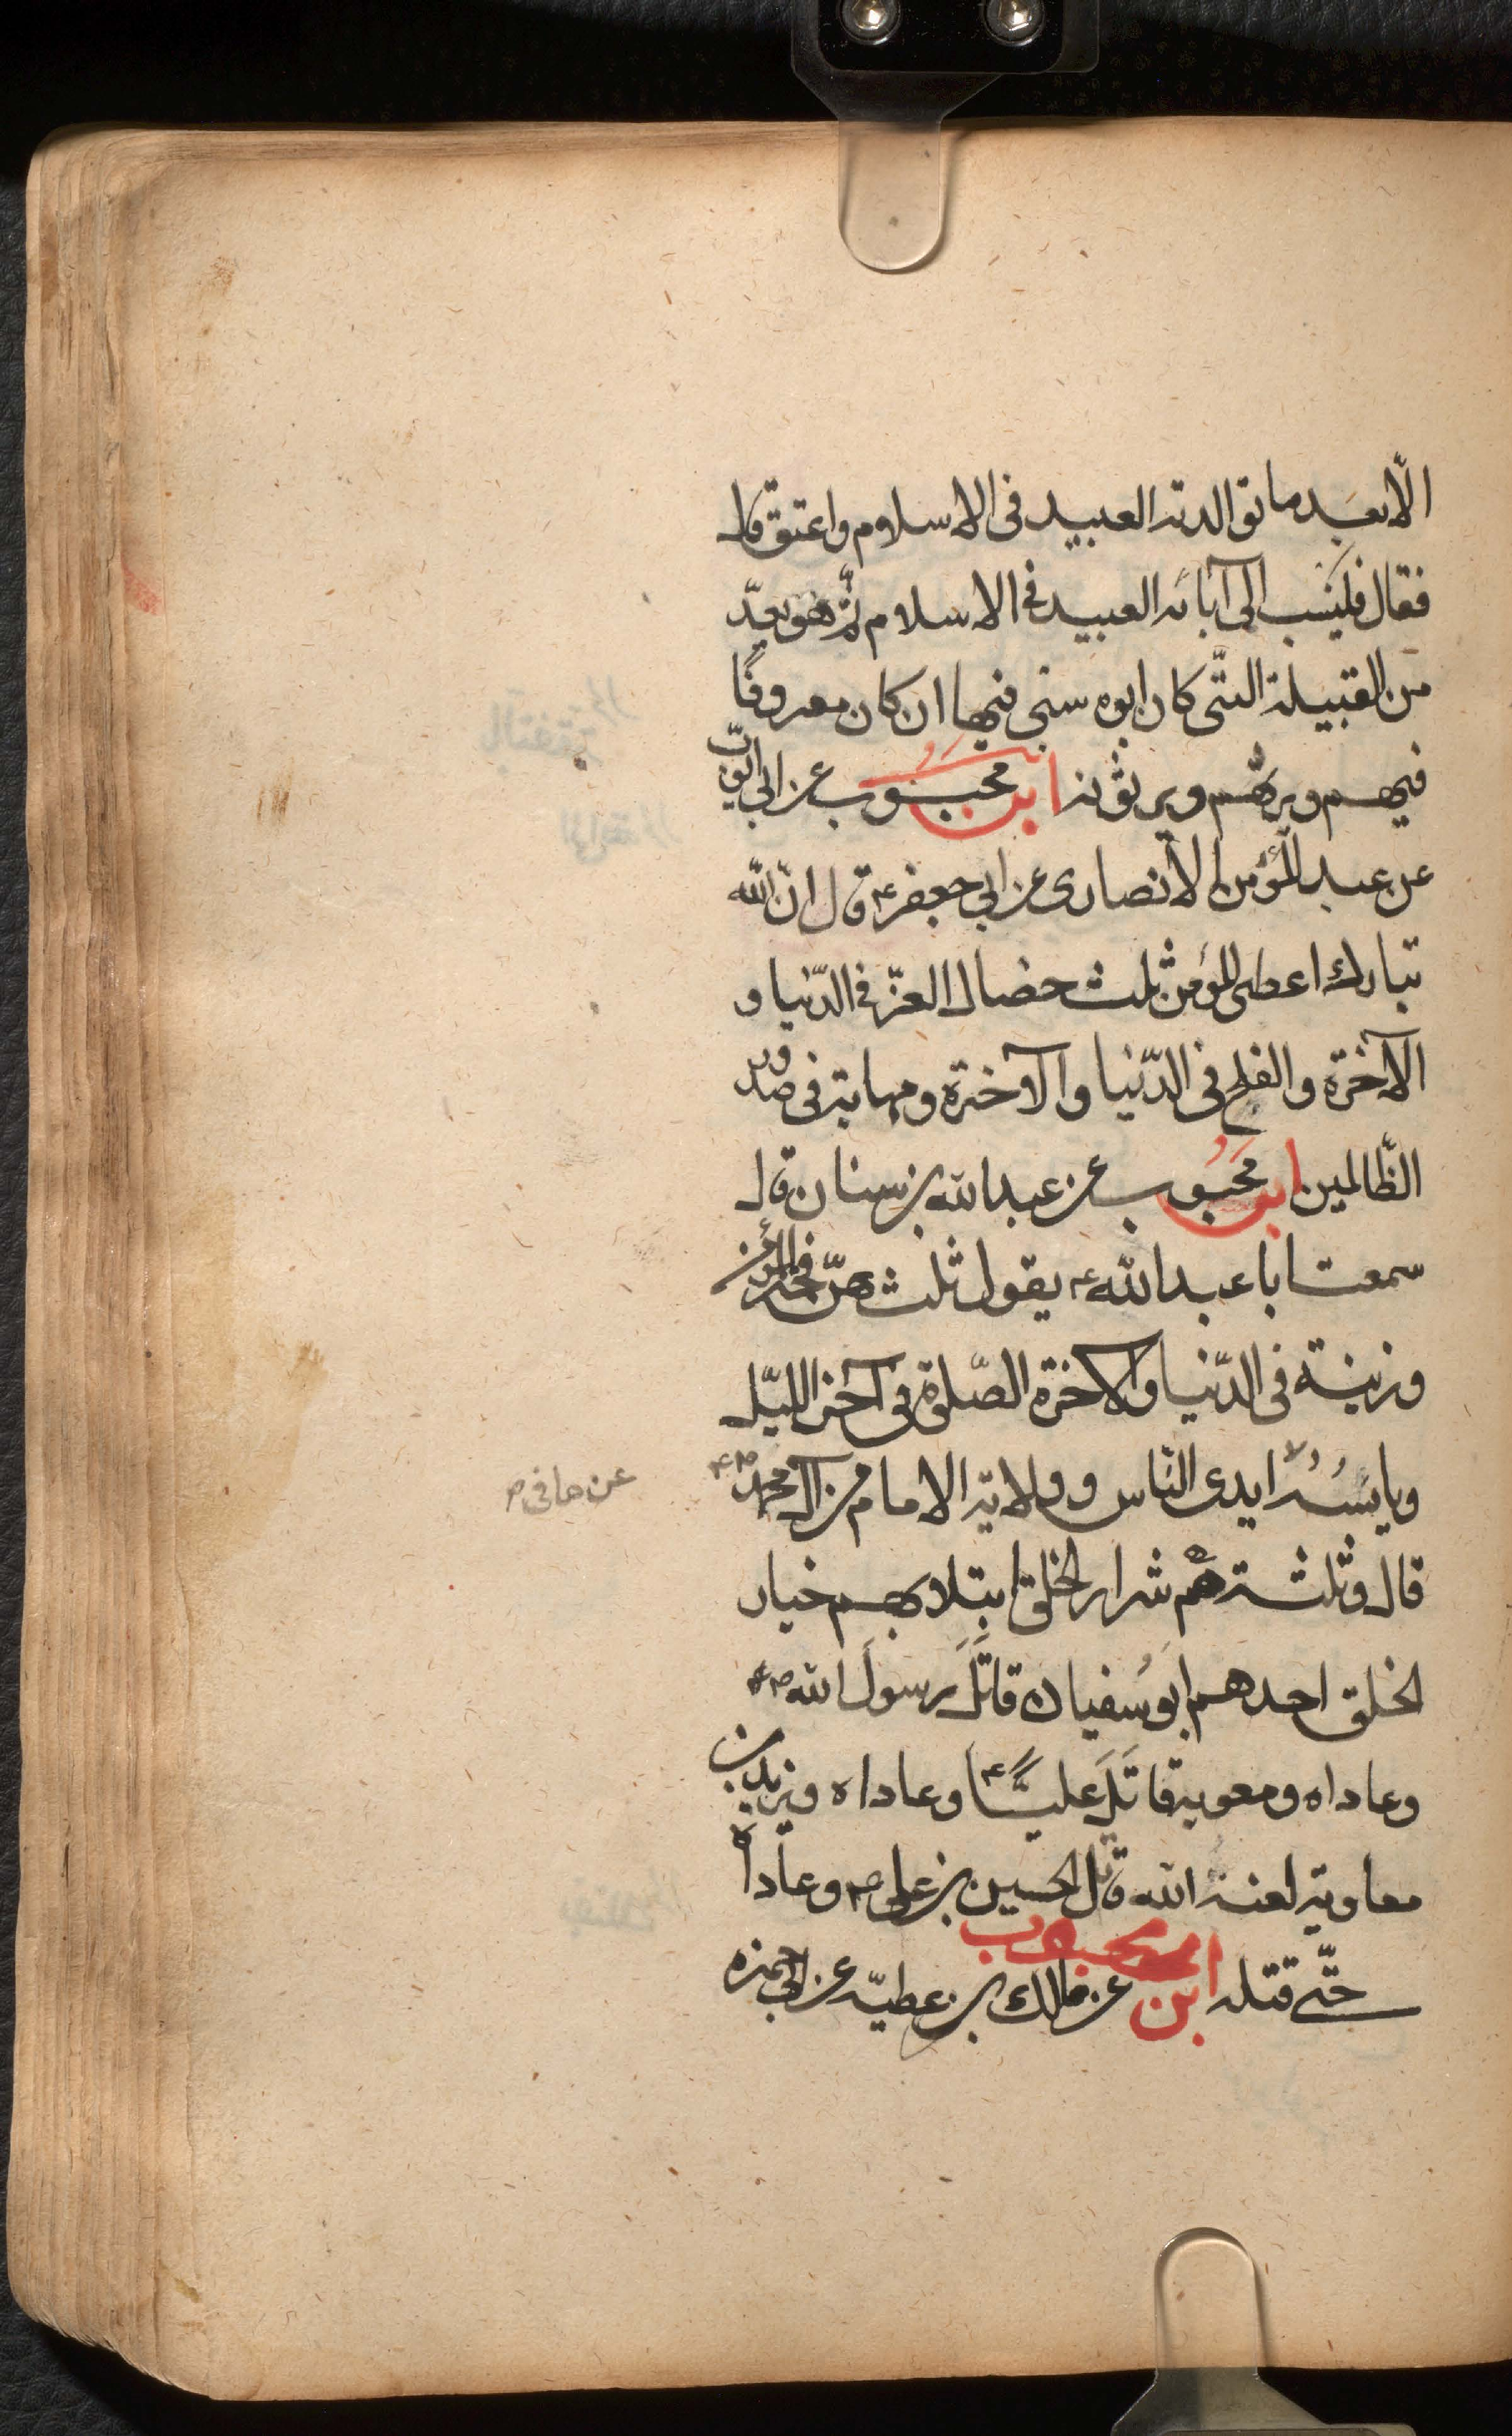 الّا بعَد ما توالدته العبيد فى الاسلام واعتق قال
فقال فلينسب الى آبائه العبيد فى الاسلام ثمّ هو يعدّ
من القبيلة التّى كان ابوه سبى فيها ان كان معروفًا
فيهم ويرثهم ويرثونه ابن محبوب عن ابى ايّوب
عن عبد المؤمن الانصارى عن ابى جعفر ع قال انّ الله
تبارك اعطى المؤمن ثلث خصال العزّ فى الدّنيا و
الآخرة والفلج فى الدّنيا والآخرة ومهابة فى صدور
الظّالمين ابن محَبُوب عن عبدالله بن سنان قال
سمعت ابا عبدالله ع يقول ثلث هنّ فخر المؤمن
وزينة فى الدّنيا والآخرة الصّلوة فى آخر اللّيل
ويايسُهُ ايدى النّاس وولاية الامام من آل محمّد ص ع
عن ما فى ص
قال وثلثة هم شرار الخلق ابتلا بهم خيار
الخلق احدهم ابو سُفيان قاتَلَ رسولَ الله ص ع
وعاداه ومعوية قاتَلَ عليًّا ع وعاداه ويزيد بن
معاوية لعنه الله قاتل الحسين بن على ع م وعاداه
حتّى قتله ابن محبوب عن مالك بن عطيّه عن ابى حمزه